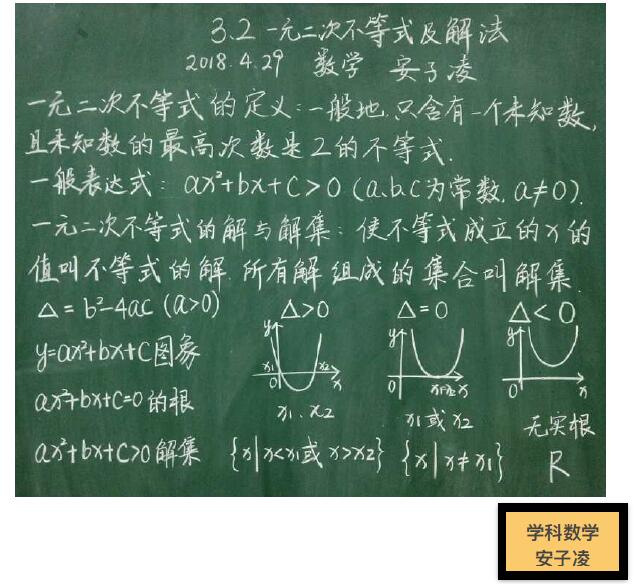 3.2 一元二次不等式及解法
2018.4.29 数学 安子凌
一元二次不等式的定义:一般地,只含有一个未知数,
且未知数的最高次数是2的不等式.
一般表达式:ax²+bx+c>0(a、b、c为常数,a≠0).
一元二次不等式的解与解集:使不等式成立的x的
值叫不等式的解,所有解组成的集合叫解集.
△=b²-4ac(a>0) △>0 △=0 △<0
y=ax²+bx+c图象
y x1 O x2 x
y O x1=x2 x
y O x
ax²+bx+c=0的根 x1、x2 x1或x2 无实根
ax²+bx+c>0解集 {x|x<x1或x>x2} {x|x≠x1} R
学科数学
安子凌